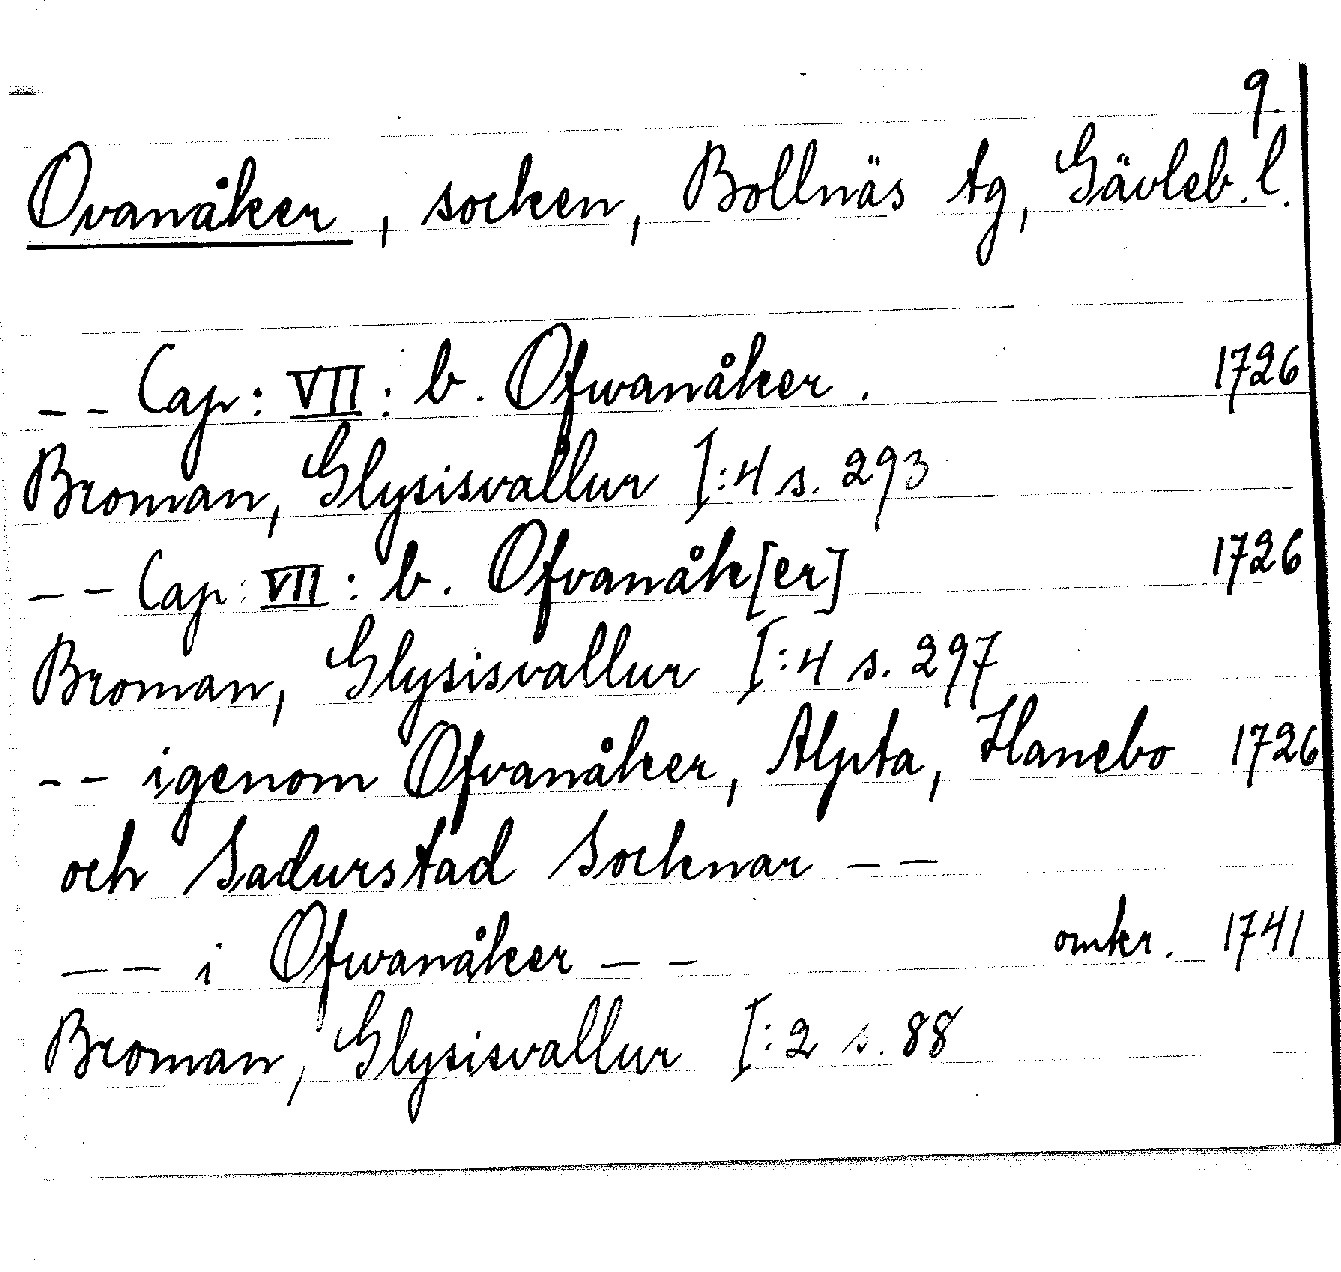 9.
Ovanåker, socken, Bollnäs tg, Gävleb. l.
-- Cap: VII: b. Ofwanåker. 1726
Broman, Glysisvallur I:4 s. 293
-- Cap: VII: b. Ofvanåk[er] 1726
Broman, Glysisvallur I:4 s. 297
-- igenom Ofvanåker, Alpta, Hanebo 1726
och Sadurstad Socknar --
-- i Ofwanåker -- omkr. 1741
Broman, Glysisvallur I:2 s. 88